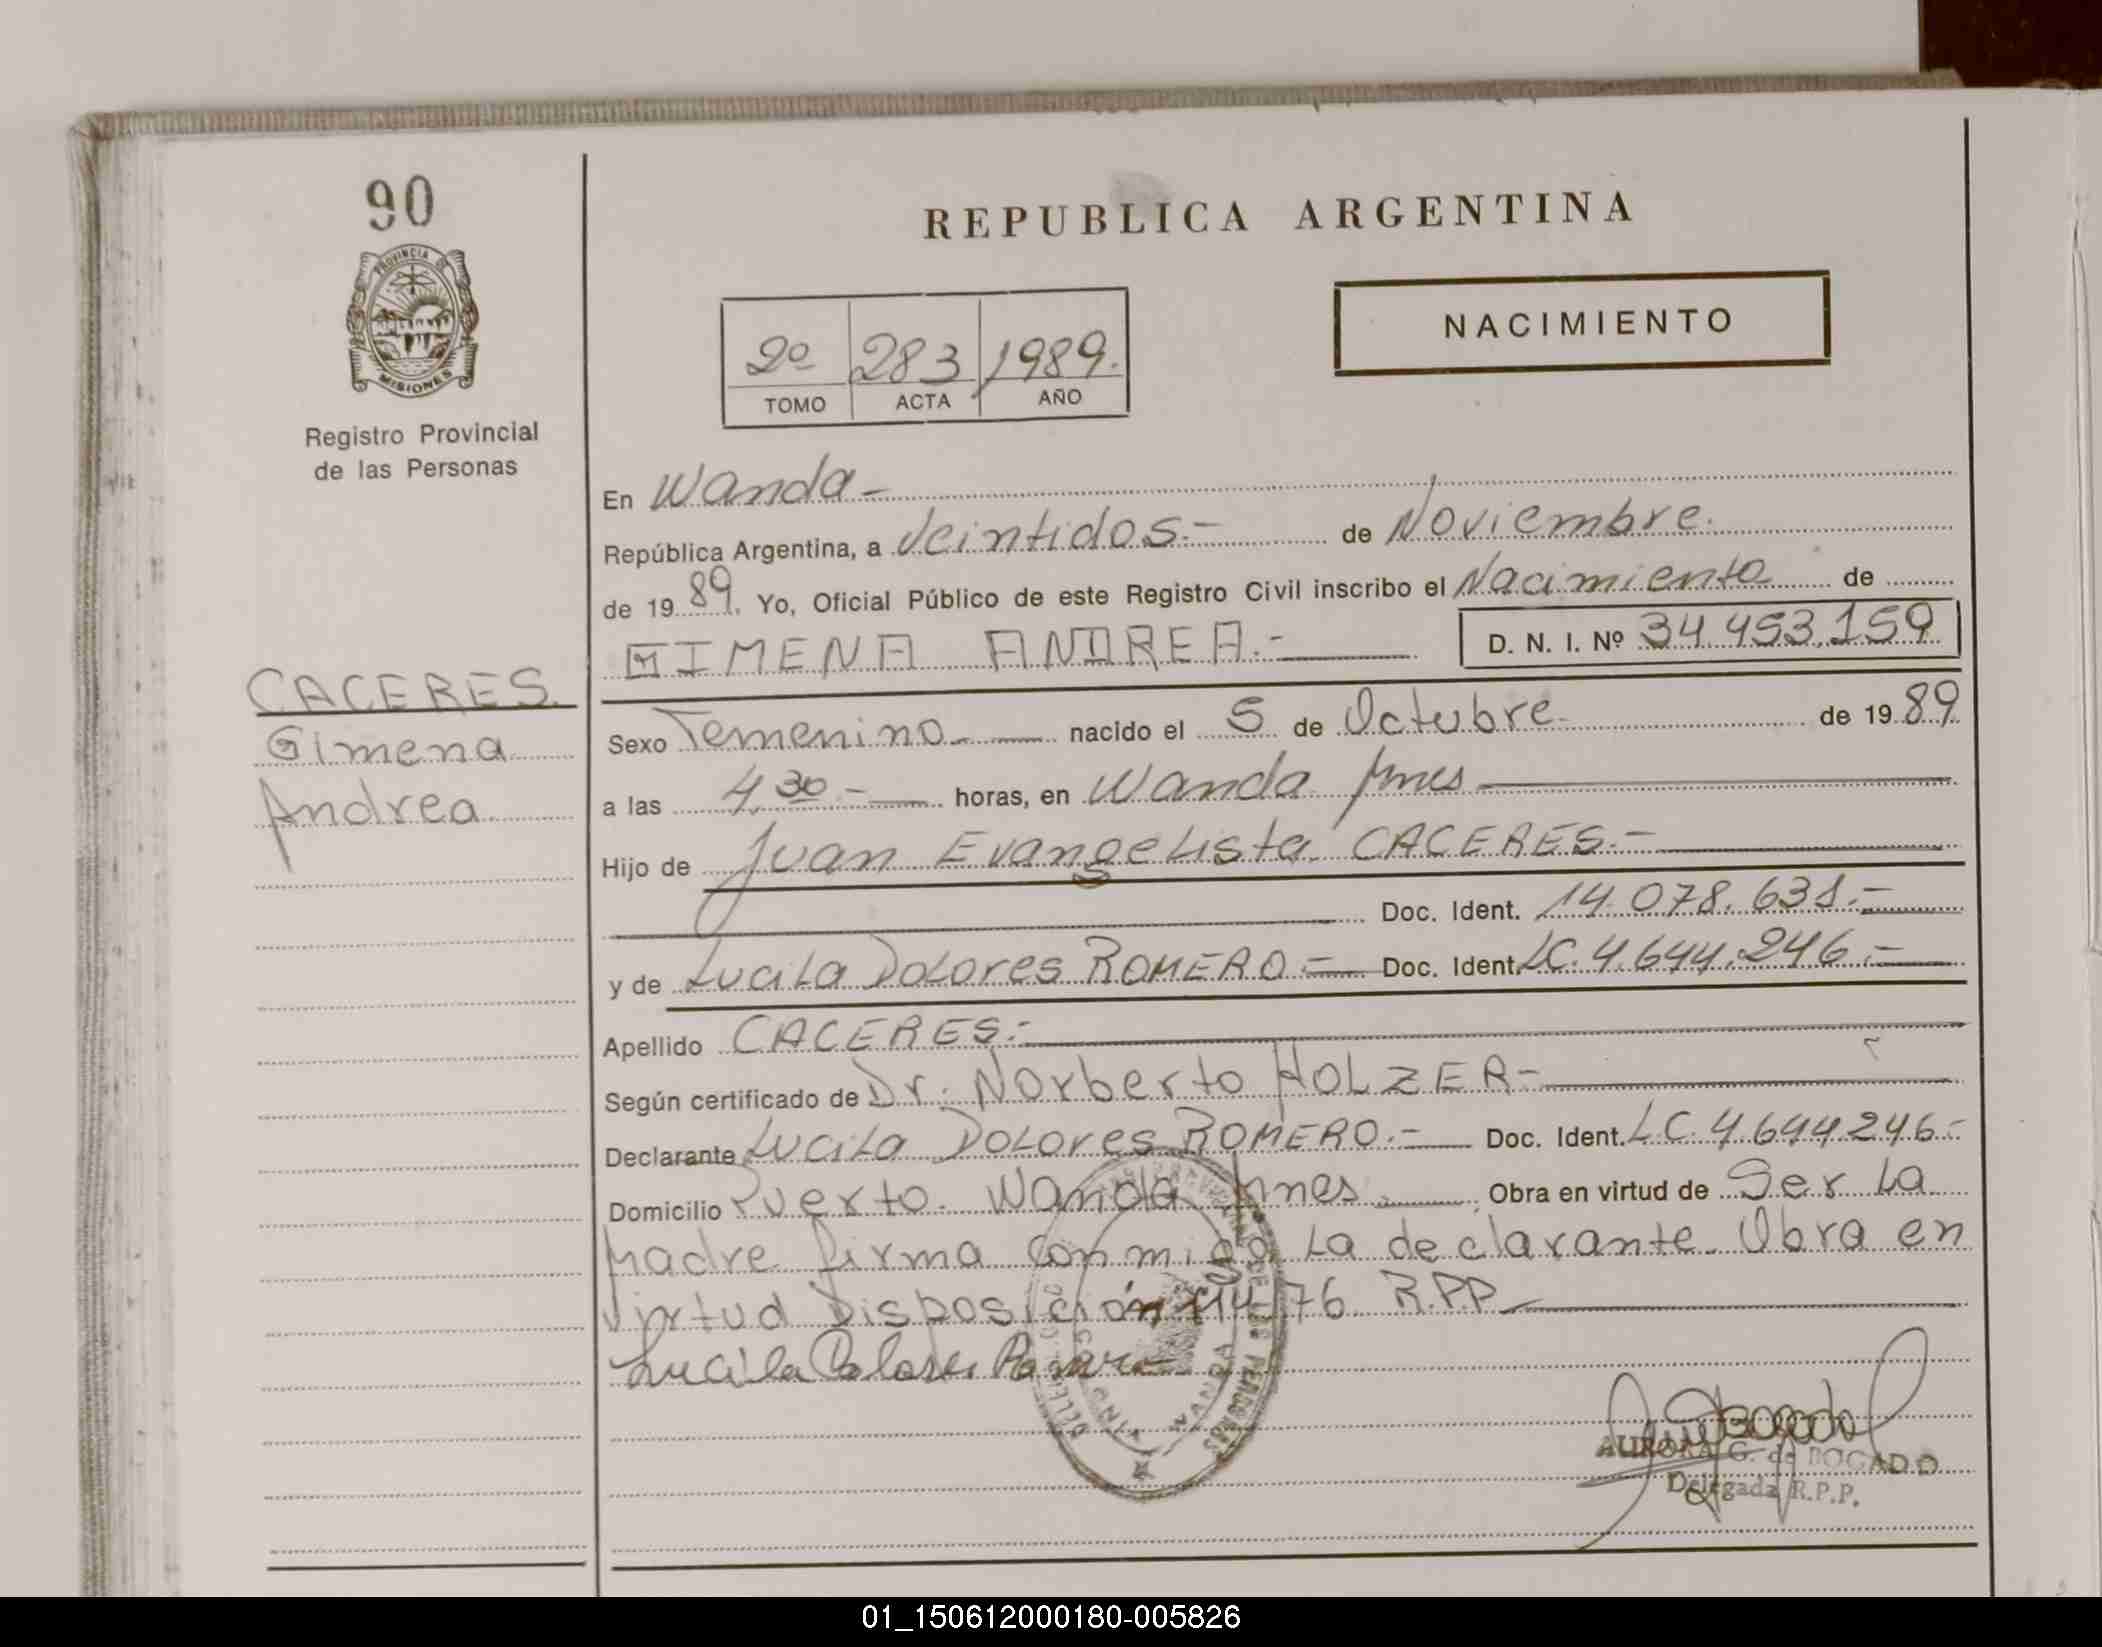 90
PROVINCIA DE
MISIONES
Registro Provincial
de las Personas
CACERES.
Gimena
Andrea
REPUBLICA ARGENTINA
NACIMIENTO
2º 283 1989.
TOMO ACTA AÑO
En Wanda -
República Argentina, a Veintidos.- de Noviembre.
de 19 89. Yo, Oficial Público de este Registro Civil inscribo el Nacimiento de
GIMENA ANDREA.- D. N. I. Nº 34.453.159
Sexo Femenino.- nacido el 5 de Octubre. de 19 89
a las 4,30.- horas, en Wanda Mnes
Hijo de Juan Evangelista CACERES.-
Doc. Ident. 14.078.631.-
y de Lucila Dolores ROMERO.- Doc. Ident. LC.4.644.246.-
Apellido CACERES.-
Según certificado de Dr. Norberto HOLZER-
Declarante Lucila Dolores ROMERO.- Doc. Ident. LC.4.644246.-
Domicilio Puerto. Wanda Mnes. Obra en virtud de Ser La
Madre firma conmigo La declarante. Obra en
virtud Disposición 114/76 R.P.P.-
Lucila Dolores Romero
WANDA
AURORA G. de BOGADO
Delegada R.P.P.
01_150612000180-005826